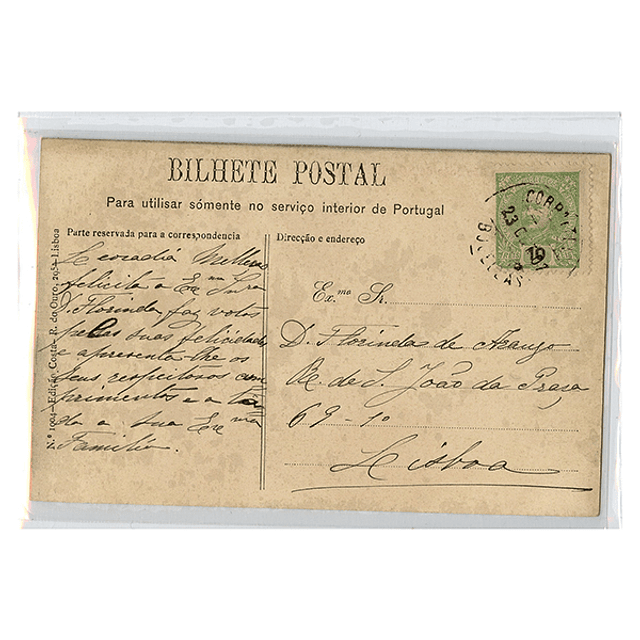 BILHETE POSTAL
Para utilisar sómente no serviço interior de Portugal
Parte reservada para a correspondencia
Direcção e endereço
N.º 1904—Edição Costa—R. do Ouro, 295—Lisboa
Leocadia
felicita a Ex.ma Snra
D. Florinda, faz votos
pelas suas felicidades
e apresenta-lhe os
seus respeitosos com
primentos e a toda
a sua Exma
Familia.
Ex.mo Sr.
D. Florinda de Araujo
R. de S. João da Praça
69-1º
Lisboa
10
23